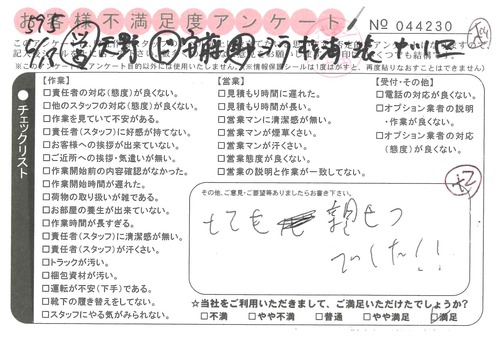 お客様不満足度アンケート
No 044230
※このアンケートはアンケート目的以外には使用いたしません。(※情報保護シールは1度はがすと、再度貼りなおすことはできません)
チェックリスト
【作業】
□責任者の対応(態度)が良くない。
□他のスタッフの対応(態度)が良くない。
□作業を見ていて不安がある。
□責任者(スタッフ)に好感が持てない。
□お客様への挨拶が出来ていない。
□ご近所への挨拶・気遣いが無い。
□作業開始前の内容確認がなかった。
□作業開始時間が遅れた。
□荷物の取り扱いが雑である。
□お部屋の養生が出来ていない。
□作業時間が長すぎる。
□責任者(スタッフ)に清潔感が無い。
□責任者(スタッフ)が汗くさい。
□トラックが汚い。
□梱包資材が汚い。
□運転が不安(下手)である。
□靴下の履き替えをしてない。
□スタッフにやる気がみられない。
【営業】
□見積もり時間に遅れた。
□見積もり時間が長い。
□営業マンに清潔感が無い。
□営業マンが煙草くさい。
□営業マンが汗くさい。
□営業態度が良くない。
□営業の説明と作業が一致してない。
【受付・その他】
□電話の対応が良くない。
□オプション業者の説明・作業が良くない。
□オプション業者の対応(態度)が良くない。
その他、ご意見・ご要望等ありましたらお書き下さい。
とても
親せつ
でした!!
☆当社をご利用いただきまして、ご満足いただけたでしょうか?
□不満 □やや不満 □普通 □やや満足 □満足